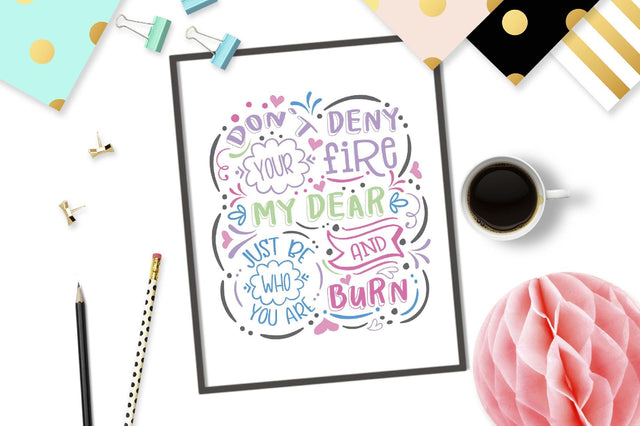 DON'T DENY
YOUR fiRE
MY DEAR
JUST BE
WHO
YOU ARE
AND
BURN